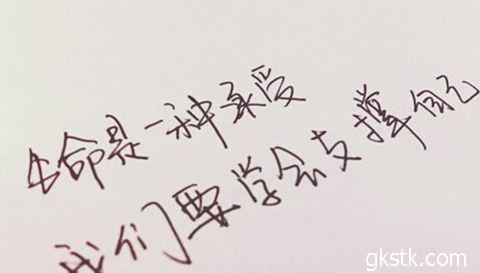 生命是一种承受
我们要学会支撑自己
gkstk.com